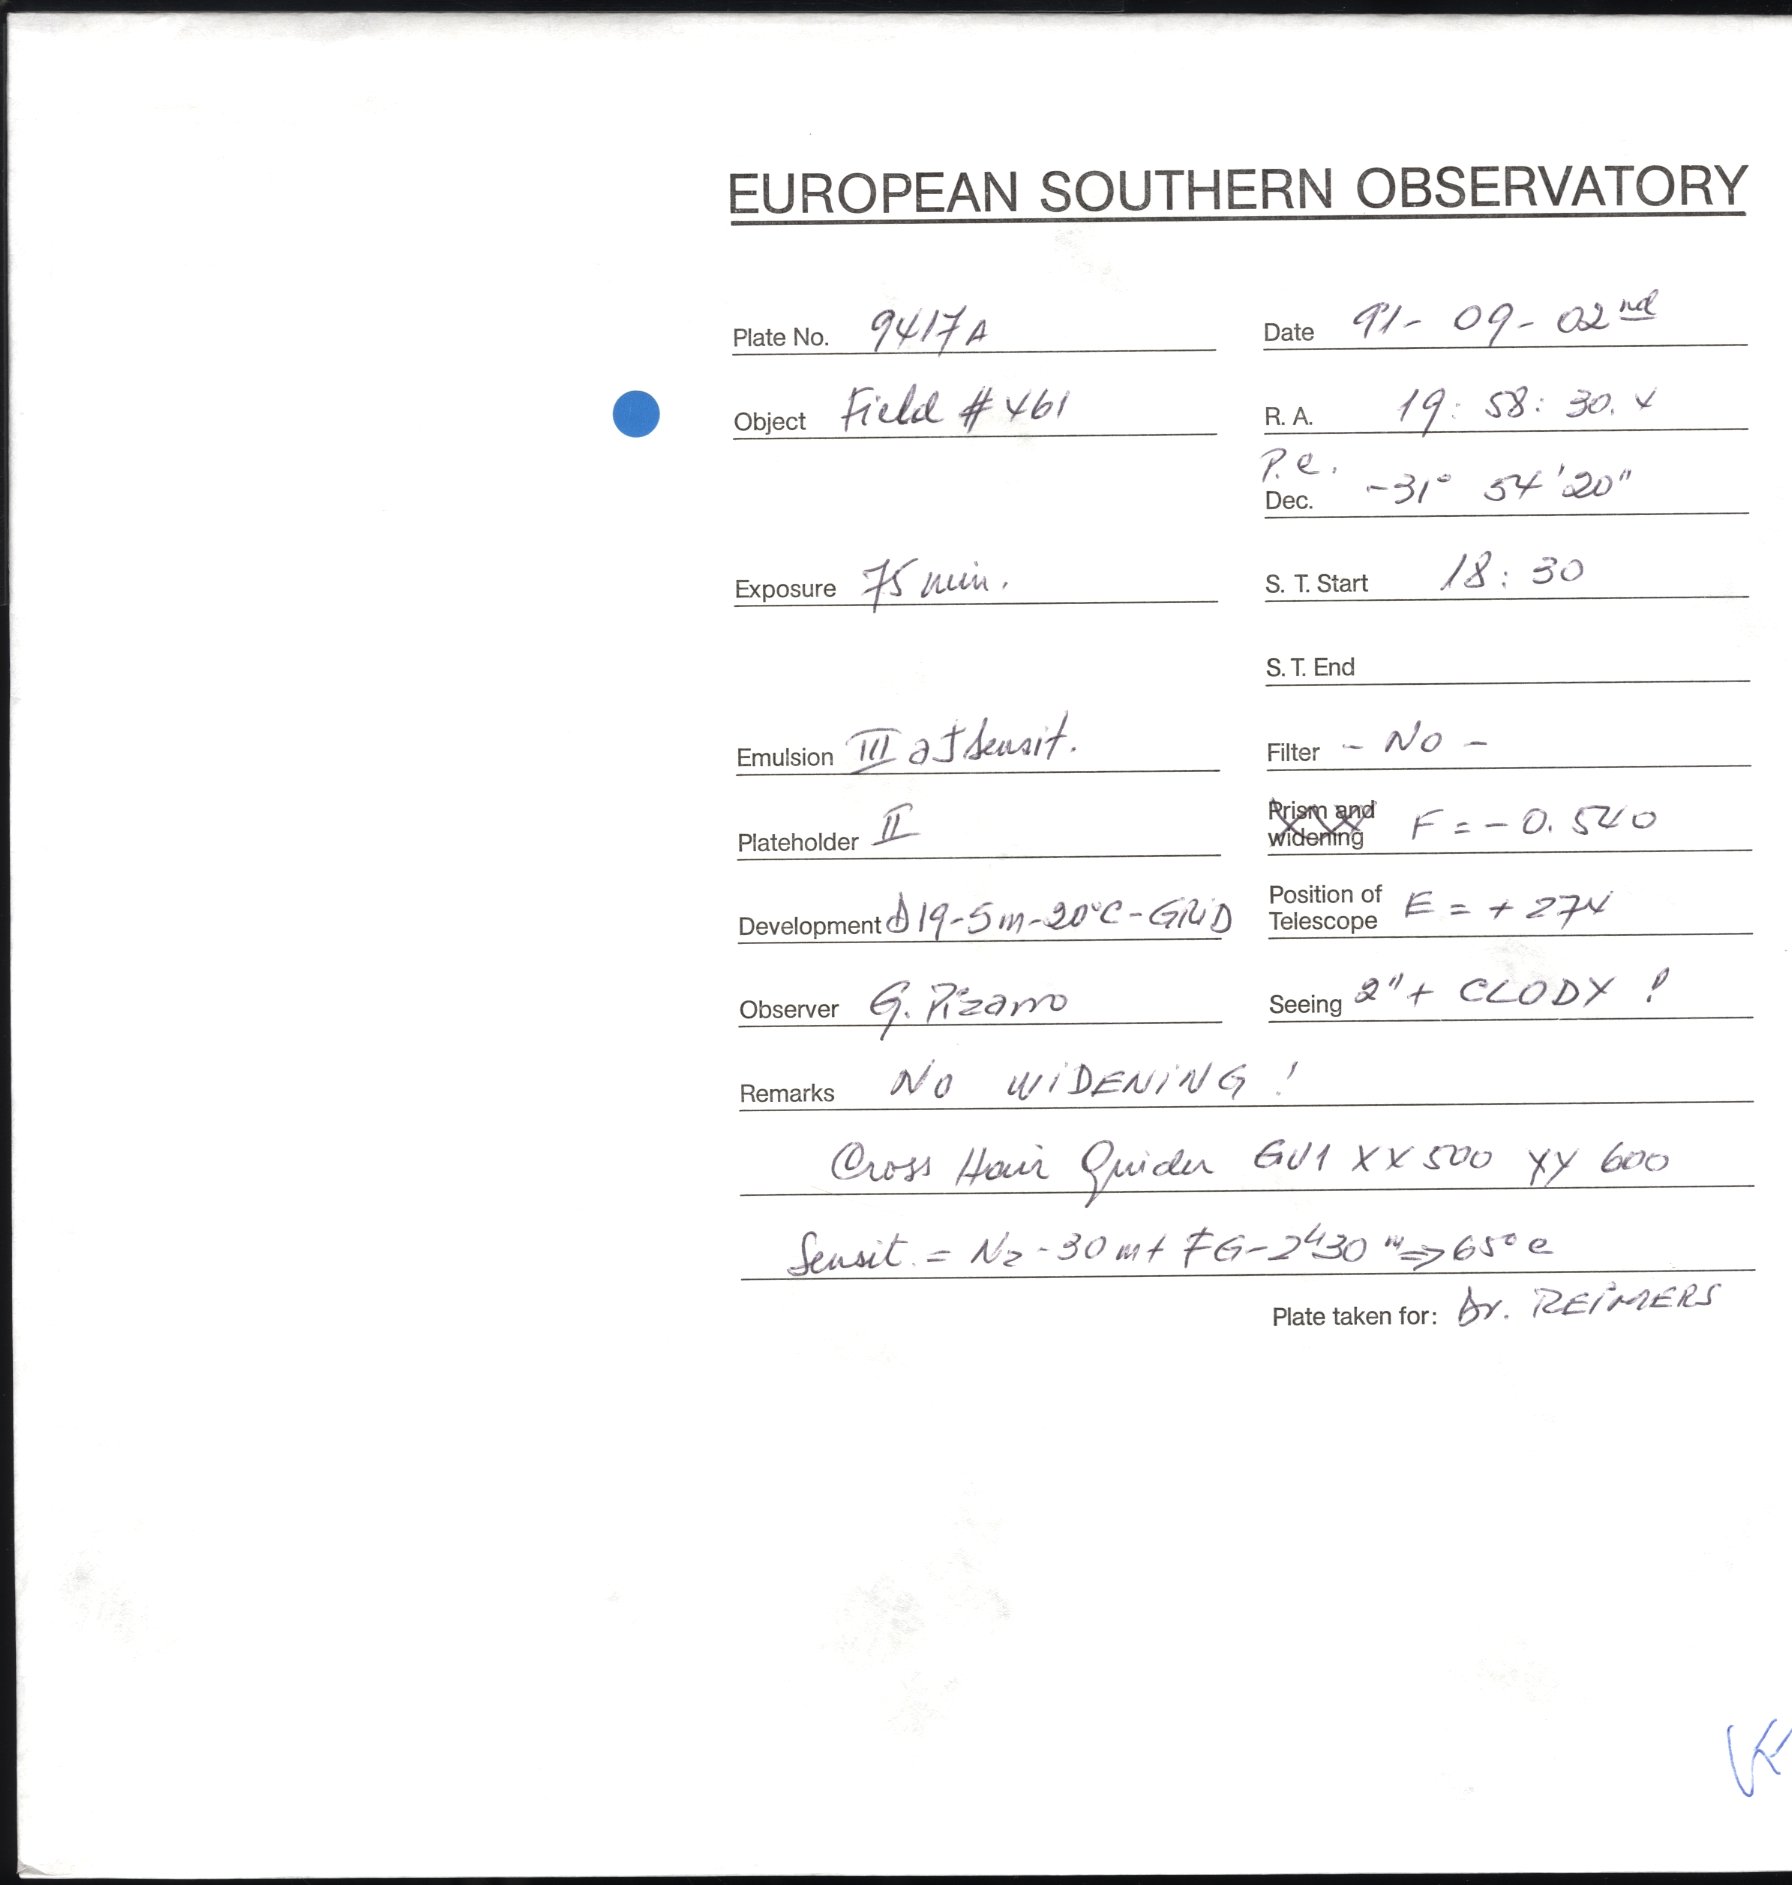 EUROPEAN SOUTHERN OBSERVATORY
Plate No. 9417A Date 91- 09- 02nd
Object Field # 461 R. A. 19: 58: 30. 4
P.e.
Dec. -31° 54' 20"
Exposure 75 min. S. T. Start 18: 30
S. T. End
Emulsion III aJ Sensit. Filter - No -
Plateholder II Prism and widening F = - 0. 540
Development D19-5m-20°C-GRiD Position of Telescope E = + 274
Observer G. Pizarro Seeing 2"+ CLODY !
Remarks No WiDENiNG !
Cross Hair Guider GU1 XX 500 YY 600
Sensit. = N2 -30 m+ FG-2h30m => 65°c
Plate taken for: Dr. REiMERS